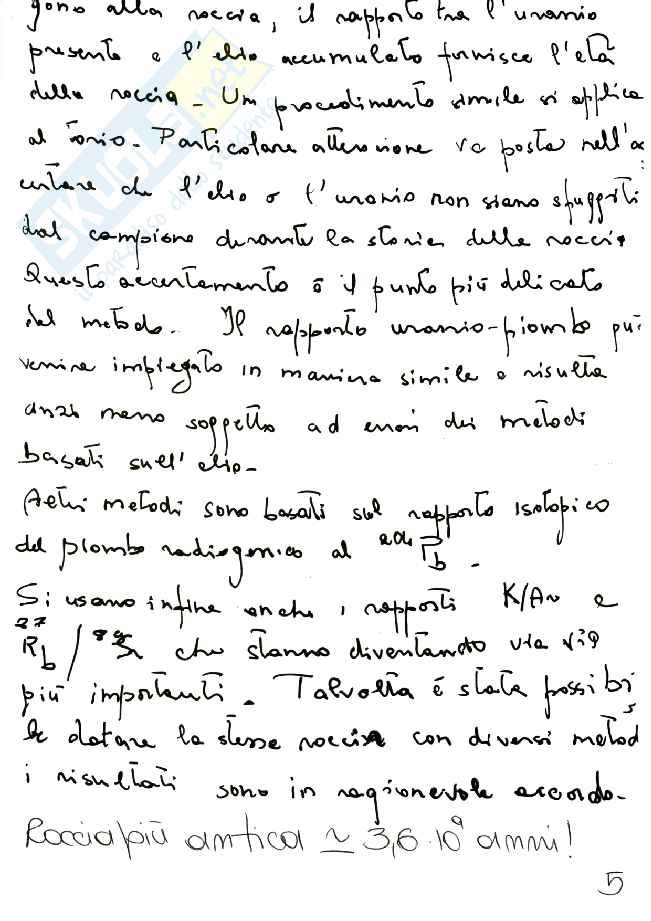 gono alla roccia, il rapporto tra l'uranio
presente e l'elio accumulato fornisce l'età
della roccia. Un procedimento simile si applica
al torio. Particolare attenzione va posta nell'ac
certare che l'elio o l'uranio non siano sfuggiti
dal campione durante la storia della roccia
Questo accertamento è il punto più delicato
del metodo. Il rapporto uranio-piombo può
venire impiegato in maniera simile e risulta
anzi meno soggetto ad errori dei metodi
basati sull'elio.
Altri metodi sono basati sul rapporto isotopico
del piombo radiogenico al ²⁰⁴Pb.
Si usano infine anche i rapporti K/Ar e
⁸⁷Rb/⁸⁷Sr che stanno diventando via via
più importanti. Talvolta è stata possibi
le datare la stessa roccia con diversi metod
i risultati sono in ragionevole accordo.
Roccia più antica ≃ 3,6·10⁹ anni!
5
SKUOLA.net